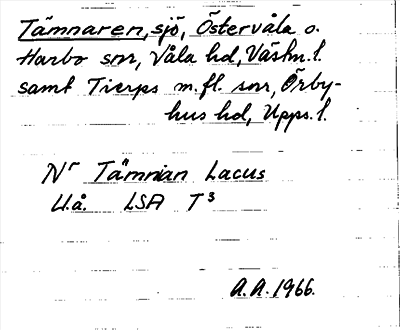 Tämnaren, sjö, Östervåla o.
Harbo snr, Våla hd, Västm. l.
samt Tierps m.fl. snr, Örby-
hus hd, Upps. l.
Nr Tämnian Lacus
U.å. LSA T3
A.A. 1966.